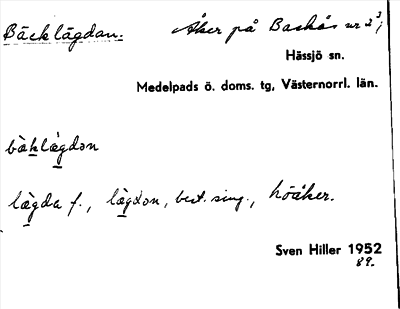 Bäcklägdan. Åker på Backås nr 2³;
Hässjö sn.
Medelpads ö. doms. tg, Västernorrl. län.
bäklägdən
lägda f., lägdən, best. sing., höåker.
Sven Hiller 1952
89.